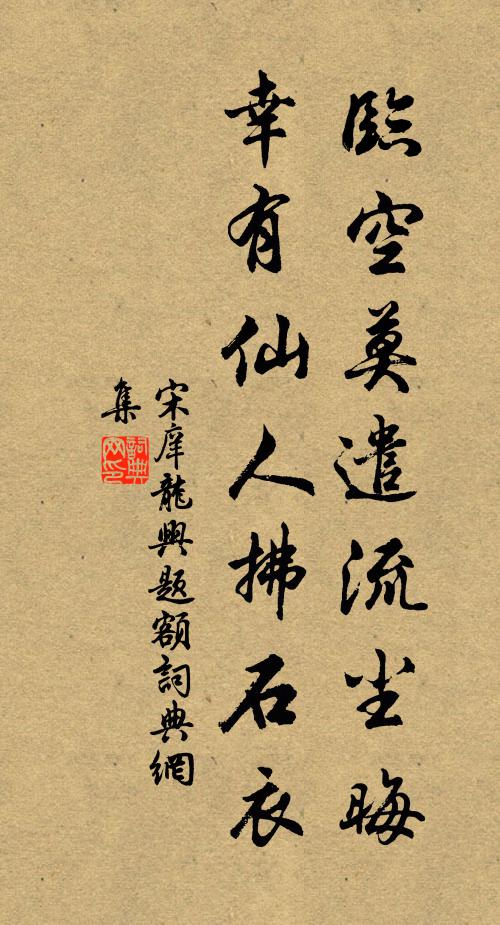 臨空莫遣流尘晦
幸有仙人拂石衣
宋庠龍興題額詞典網
集
詞典
网印